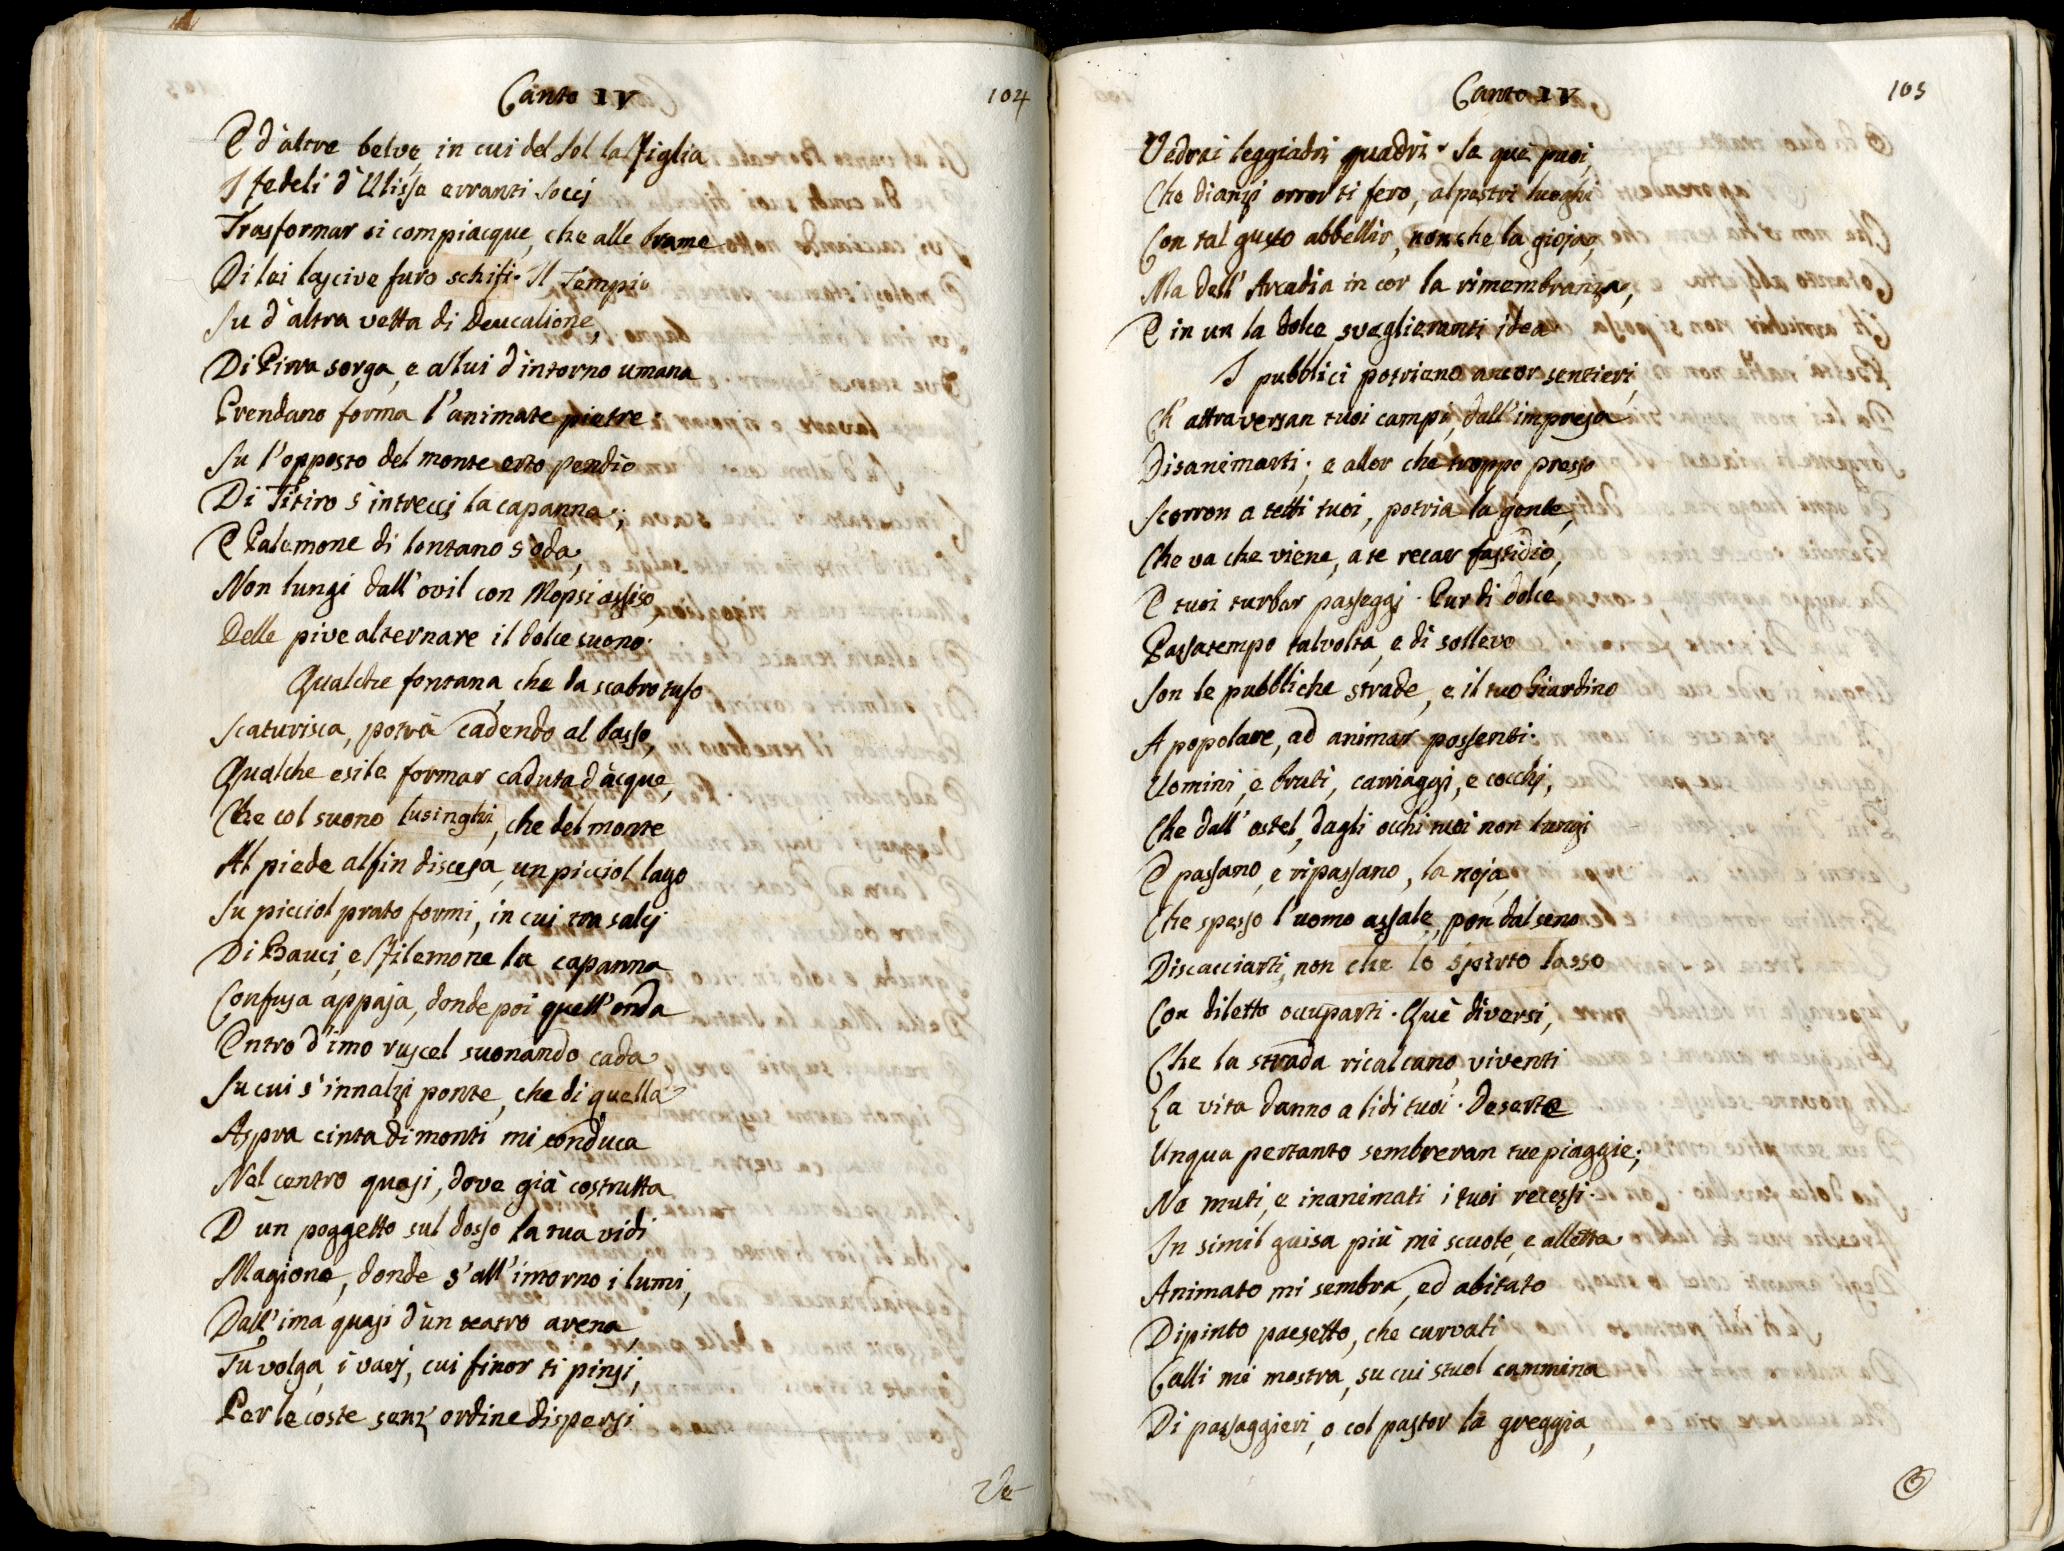 Canto IV
104
E d'altre belve, in cui del Sol la Figlia
I fedeli d'Ulisse erranti Socj
Trasformar si compiacque, che alle brame
Di lei lascive furo schifi. Il Tempio
Su d'altra vetta di Deucalione,
Di Pirra sorga, e a lui d'intorno umana
Prendano forma l'animate pietre.
Su l'opposto del monte erto pendìo
Di Titiro s'intrecci la capanna;
E Palemone di lontano s'oda,
Non lungi dall'ovil con Mopsi assiso,
Delle pive alternare il dolce suono.
Qualche fontana, che da scabro tufo
Scaturisca, potrà cadendo al basso,
Qualche esile formar caduta d'acque,
Che col suono lusinghi, che del monte
Al piede alfin discesa, un picciol lago
Su picciol prato formi, in cui tra salcj
Di Bauci, e Filemone la capanna
Confusa appaja, donde poi quell'onda
Entro d'imo ruscel suonando cada
Su cui s'innalzi ponte, che di quella
Aspra cinta di monti mi conduca
Nel centro quasi, dove già costrutta
D'un poggetto sul dosso la tua vidi
Magione, donde s'all'intorno i lumi,
Dall'ima quasi d'un teatro arena,
Tu volga, i varj, cui finor ti pinsi,
Per le coste senz'ordine dispersi
Ve-
Canto IV
105
Vedrai leggiadri quadri. Se què puoi,
Che dianzi orror ti fero, alpestri luoghi
Con tal gusto abbellir, non che la gioja,
Ma dell'Arcadia in cor la rimembranza,
E in un la dolce sveglieranti idea
I pubblici potriano ancor sentieri,
Ch'attraversan tuoi campi, dall'impresa
Disanimarti; e allor che troppo presso
Scorron a tetti tuoi, potria la gente,
Che va che viene, a te recar fastidio,
E tuoi turbar passeggj. Pur di dolce
Passatempo talvolta, e di sollevo
Son le pubbliche strade, e il tuo Giardino
A popolare, ad animar possenti.
Uomini, e bruti, carriaggi, e cocchj,
Che dall'ostel, dagli occhi tuoi non lungi
E passano, e ripassano, la noja,
Che spesso l'uomo assale, pon dal seno
Discacciarti, non che lo spirto lasso
Con diletto occuparti. Què diversi,
Che la strada ricalcano, viventi
La vita danno a lidi tuoi. Deserte
Unqua pertanto sembreran tue piaggie;
Ne muti, e inanimati i tuoi recessi.
In simil guisa più mi scuote, e alletta
Animato mi sembra, ed abitato
Dipinto paesetto, che curvati
Calli mi mostra, su cui stuol cammina
Di passaggieri, o col pastor la greggia,